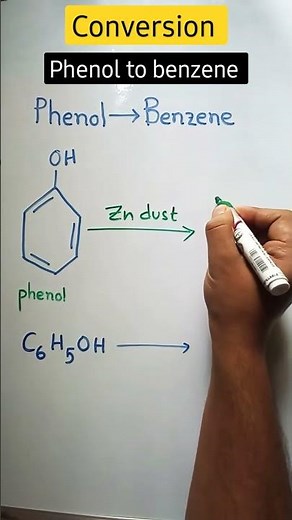 Conversion
Phenol to benzene
Phenol → Benzene
OH
Zn dust
phenol
C₆H₅OH